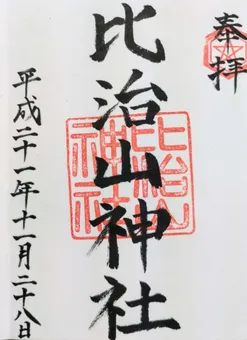 奉拝
比治山神社
比治山
神社
平成二十一年十一月二十八日